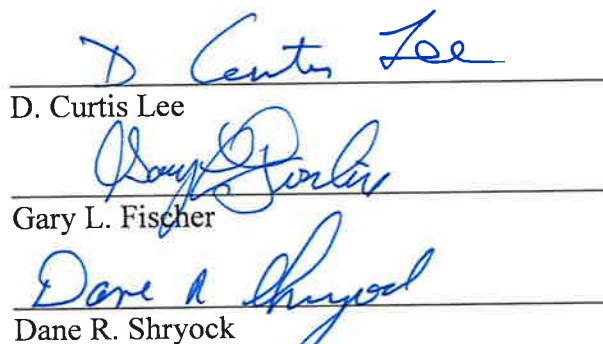 D Curtis Lee
D. Curtis Lee
Gary L Fischer
Gary L. Fischer
Dane R Shryock
Dane R. Shryock